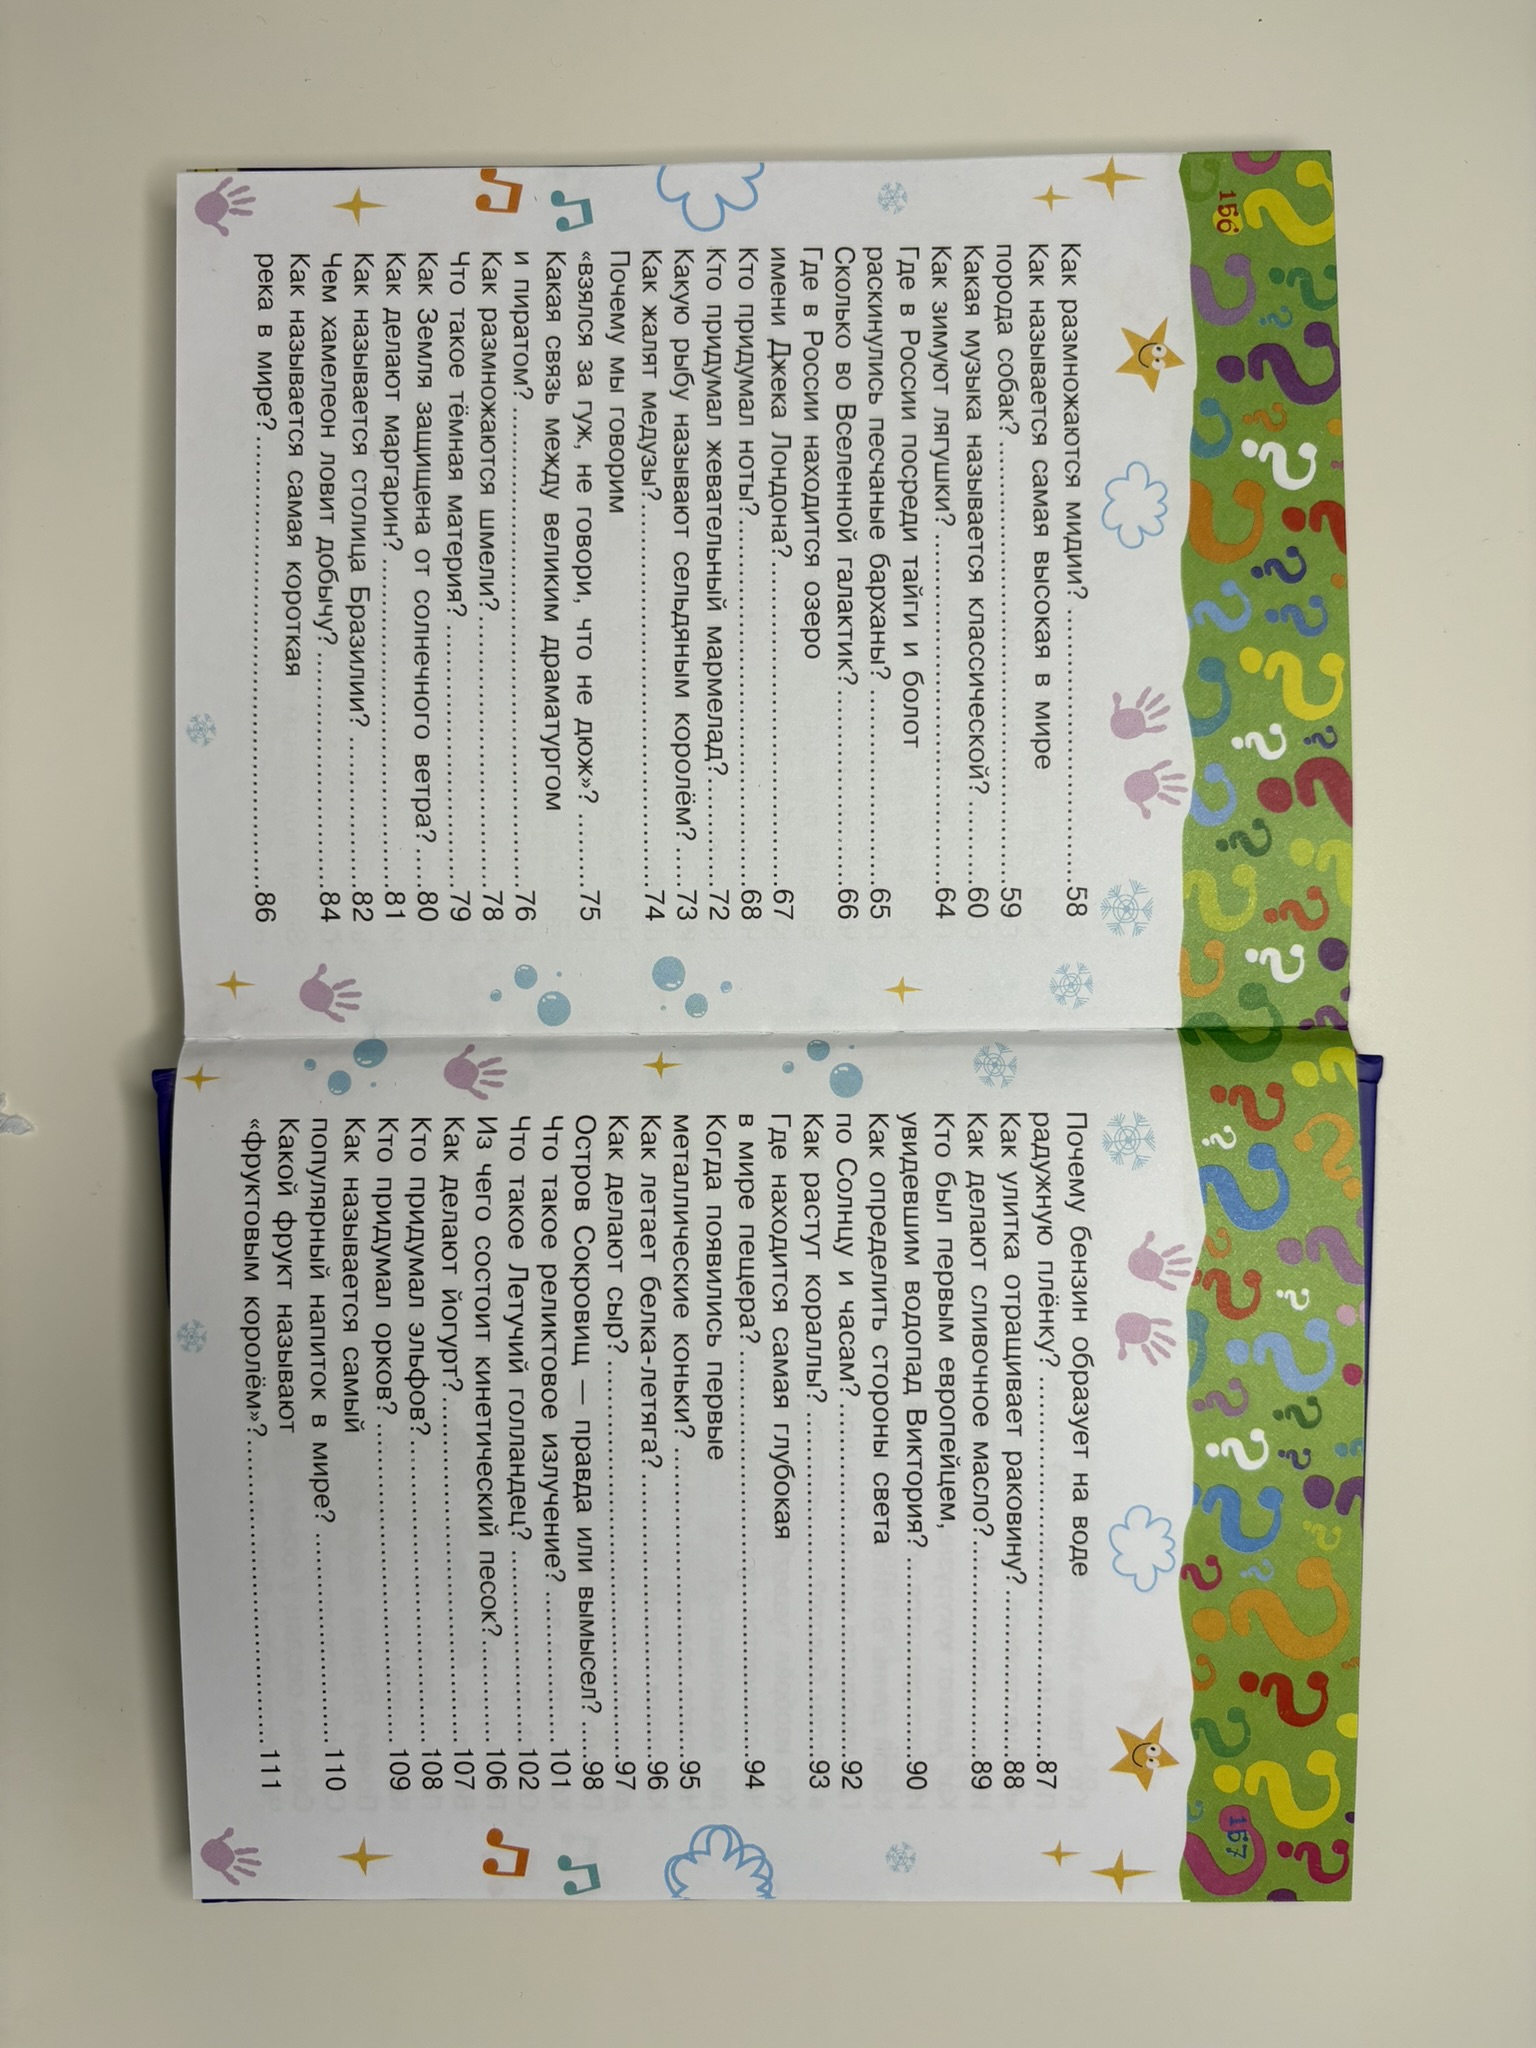 156
Как размножаются мидии? ..............................58
Как называется самая высокая в мире
порода собак? ..............................................59
Какая музыка называется классической? ........60
Как зимуют лягушки? .....................................64
Где в России посреди тайги и болот
раскинулись песчаные барханы? ....................65
Сколько во Вселенной галактик?.....................66
Где в России находится озеро
имени Джека Лондона?...................................67
Кто придумал ноты?........................................68
Кто придумал жевательный мармелад?...........72
Какую рыбу называют сельдяным королём? ....73
Как жалят медузы?..........................................74
Почему мы говорим
«взялся за гуж, не говори, что не дюж»? .........75
Какая связь между великим драматургом
и пиратом? ....................................................76
Как размножаются шмели?..............................78
Что такое тёмная материя? .............................79
Как Земля защищена от солнечного ветра? ....80
Как делают маргарин?.....................................81
Как называется столица Бразилии? ................82
Чем хамелеон ловит добычу?..........................84
Как называется самая короткая
река в мире?..................................................86
Почему бензин образует на воде
радужную плёнку? .........................................87
Как улитка отращивает раковину? ..................88
Как делают сливочное масло?.........................89
Кто был первым европейцем,
увидевшим водопад Виктория? ......................90
Как определить стороны света
по Солнцу и часам? .......................................92
Как растут кораллы? ......................................93
Где находится самая глубокая
в мире пещера? ............................................94
Когда появились первые
металлические коньки? ..................................95
Как летает белка-летяга?................................96
Как делают сыр? ............................................97
Остров Сокровищ — правда или вымысел? ....98
Что такое реликтовое излучение? .................101
Что такое Летучий голландец? ......................102
Из чего состоит кинетический песок?............106
Как делают йогурт?.......................................107
Кто придумал эльфов?..................................108
Кто придумал орков? ...................................109
Как называется самый
популярный напиток в мире? .......................110
Какой фрукт называют
«фруктовым королём»?.................................111
157